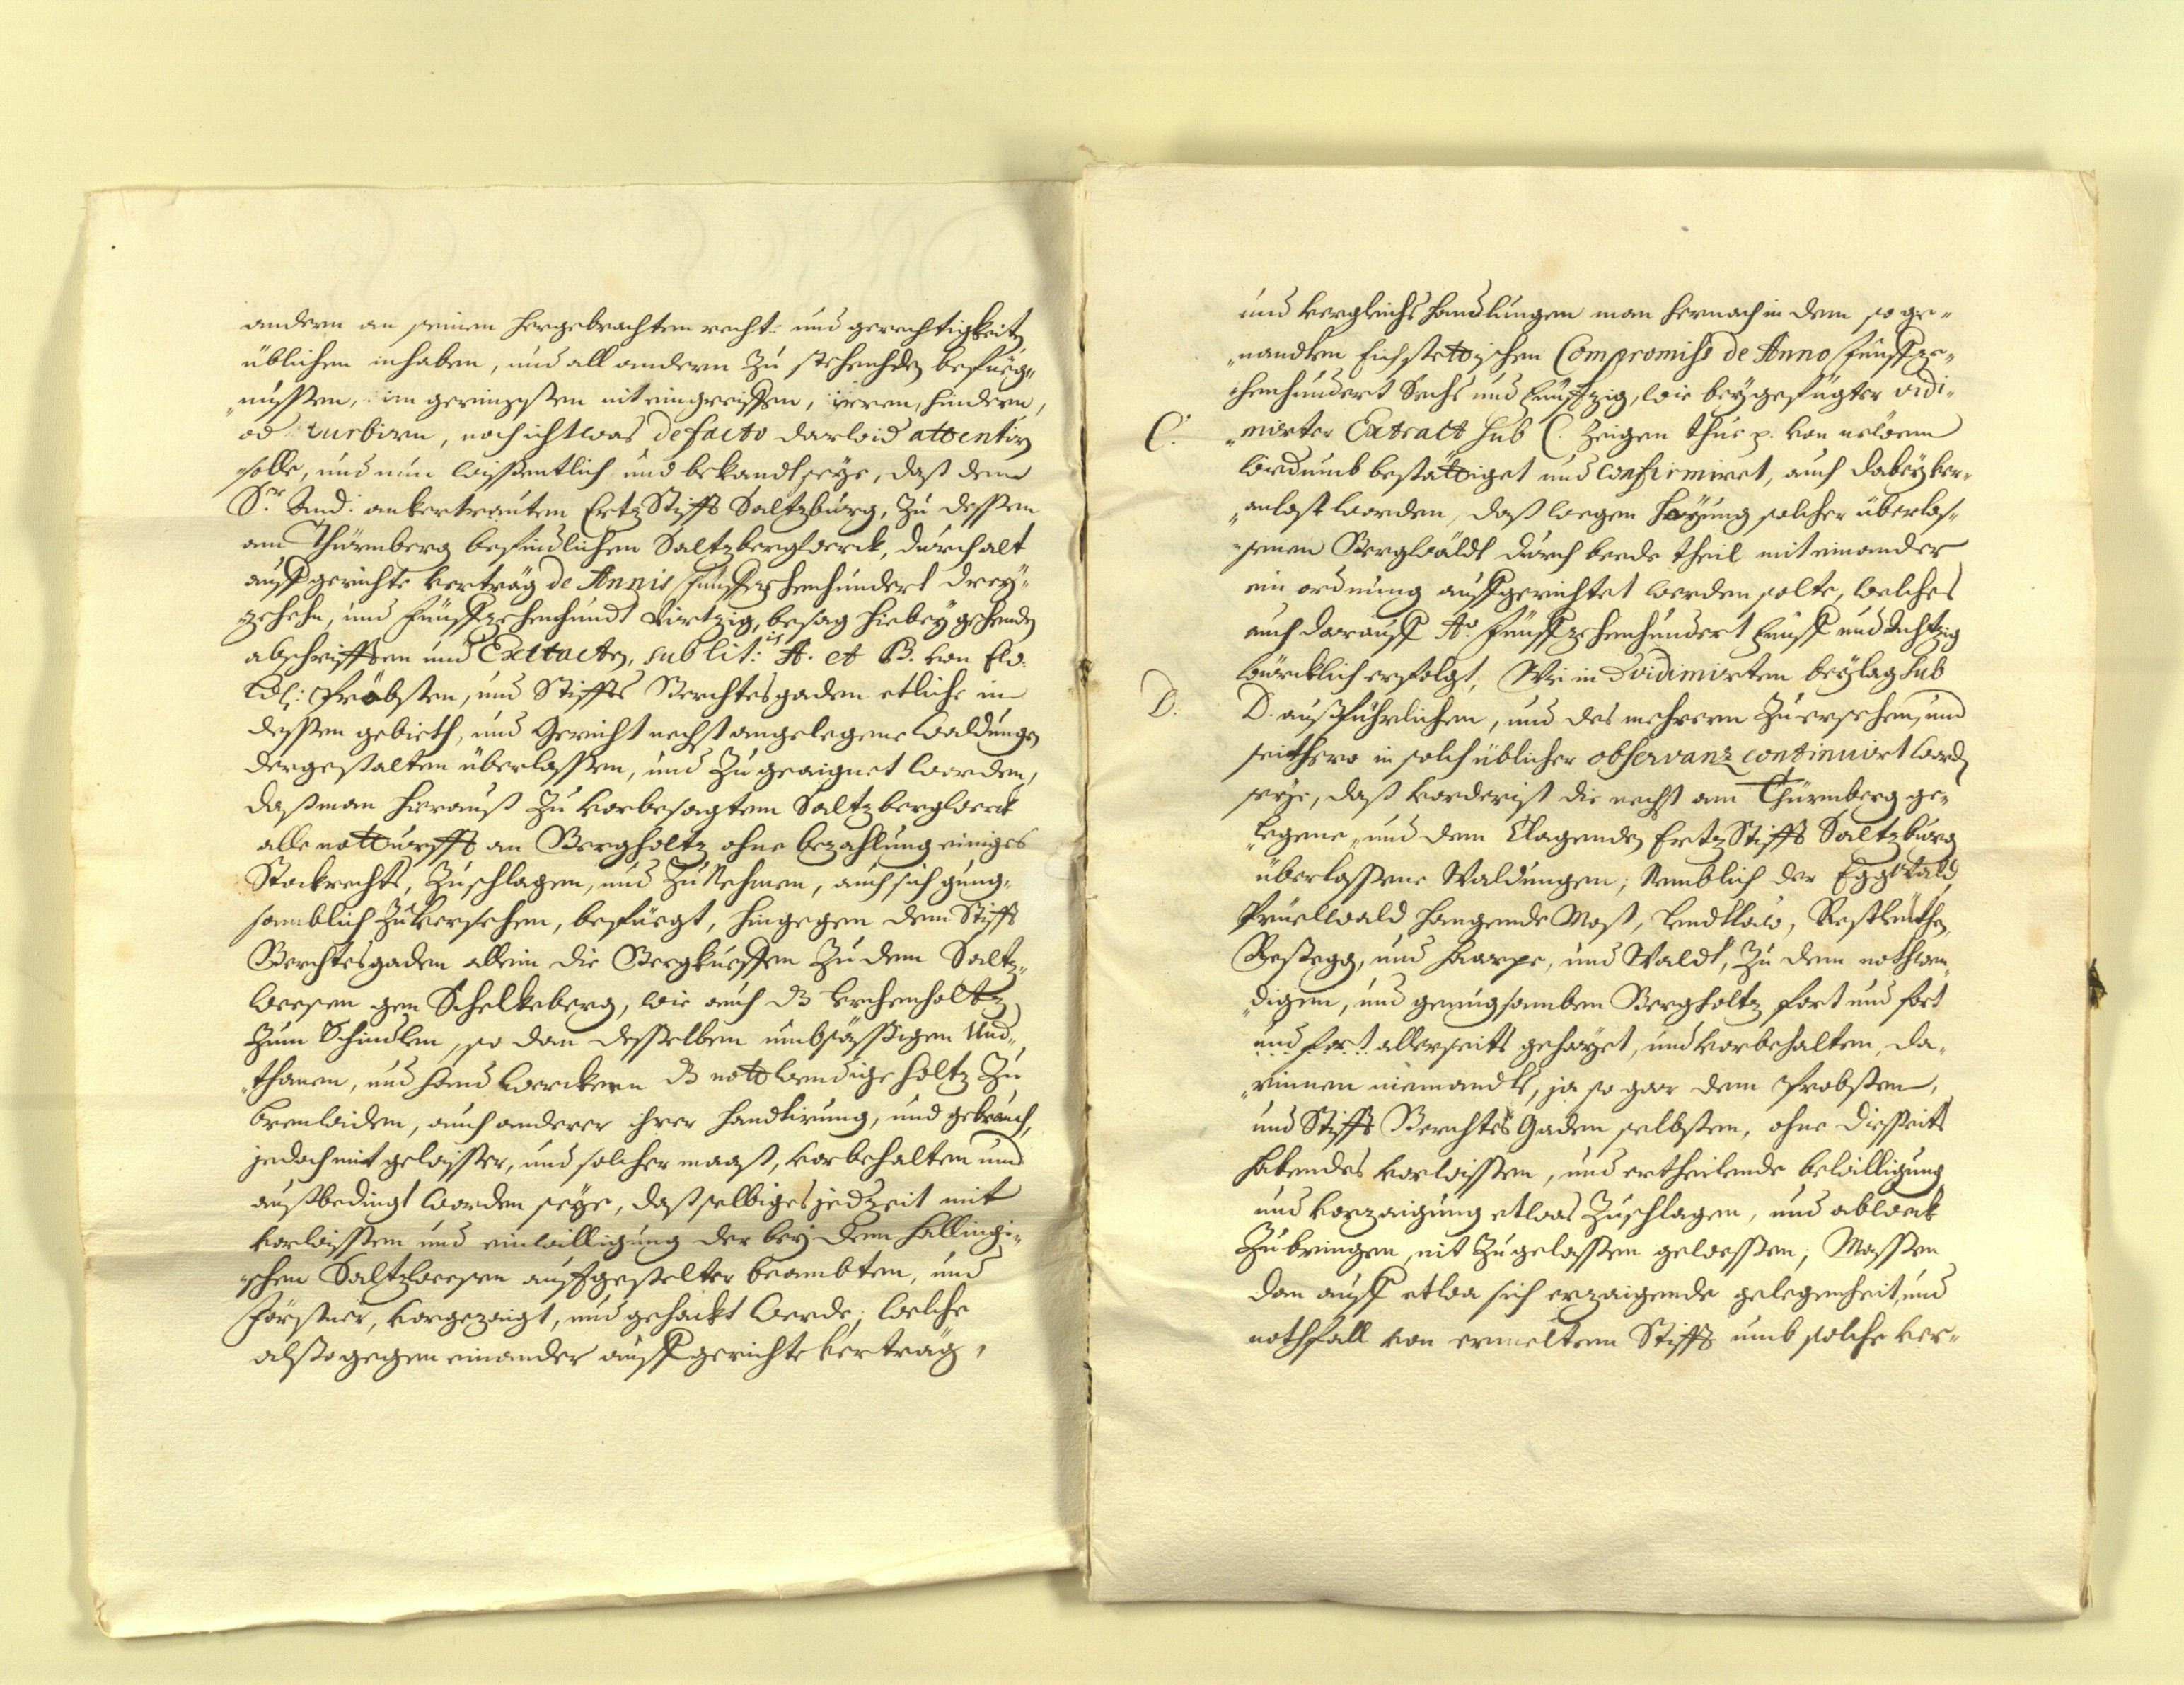 andern an seinen hergebrachten recht: und gerechtigkeit,
üblichen inhaben, und all andern zu stehenden befueg„
„nussen, im geringsten nit eingreiffen, irren, hindern,
od turbirn, noch ichtwas de facto darwid attentirn
solle, und nun wissentlich und bekandt seye, daß dem
Sr. And: anvertrauten ErtzStifft Saltzburg, zu dessen
am Thürnberg befindlichen Saltzbergwerck, durch alt
auffgerichte verträg de Annis fünffzehenhundert drey„
„zehen, und fünffzehenhundt viertzig, besag hiebey gehende
abschrifften und Extracten, sub lit: A. et B. von
Pröbsten, und Stiffts Berchtesgaden etliche in
dessen gebieth, und Gericht nechst angelegene Waldungen
dergestalten überlassen, und zu geaignet worden,
daß man hierauß zu vorbesagtem Saltzbergwerck
alle notturfft an Bergholtz ohne bezahlung einiges
Stockrechts, zuschlagen, und zu Nehmen, auch sich gnug„
samblich zu versehen, befuegt, hingegen dem Stifft
Berchtesgaden allein die zu dem Saltz„
weesen gen Schellenberg, wie auch dz Lerchenholtz
zum Schindlen, so dan desselben umbsässigen Und„
„thanen, und handwerckern dz nottwendige holtz zu
auch anderer ihrer handtirung, und gebrauch,
jedoch mit gewisser, und solcher maaß, vorbehalten und
außbedingt worden seye, daß selbiges jedzeit mit
vorwissen und einwilligung der bey dem Hallingi„
„schen Saltzweesen auffgestelter beambten, und
Förstner, vorgezaigt, und gehackt werde; welche
also gegen einander auffgerichte verträg„
und vergleichshandlungen man hernach in dem so ge„
„nandten Eichstettischen Compromiss de Anno fünffze„
„henhundert Sechs und fünffzig, wie beygefügter vidi„
C. „mirter Extract sub C. zeigen thue p. von
widrumb bestättiget und confirmiret, auch dabey ver„
„anlast worden, daß wegen hayung solcher überlas„
„senen Bergwäldt durch beede theil mit einander
ein ordnung auffgerichtet werden solte, welches
auch darauff Ao. fünffzehenhundert fünff und Achtzig
würcklich erfolgt, Wie in vidimirten beylag sub
D. D. außführlichen, und des mehrern zuersehen, und
seithero in solch üblicher observanz continuirt word
seye, daß vorderist die nechst am Thürnberg ge„
„legene, und dem Clagenden ErtzStifft Saltzburg
überlassene Waldungen; Nemblich der Eggwald
Prüelwald hangende Most, Restleuthen,
Restegg, und haarpe, und Waldt, zu dem nothwen„
„digen, und genugsamben Bergholtz fort und fort
und fort allerseits gehayet, und vorbehalten, da„
„rinnen niemandts, ja so gar dem Probsten,
und Stifft Berchtes Gaden selbsten, ohne diesseits
habendes vorwissen, und ertheilende bewilligung
und vorzaigung etwas zuschlagen, und abweck
zu bringen, nit zugelassen gewessen; Massen
dan auff etwa sich erzaigende gelegenheit, und
nothfall von ermeltem Stifft umb solche ver„